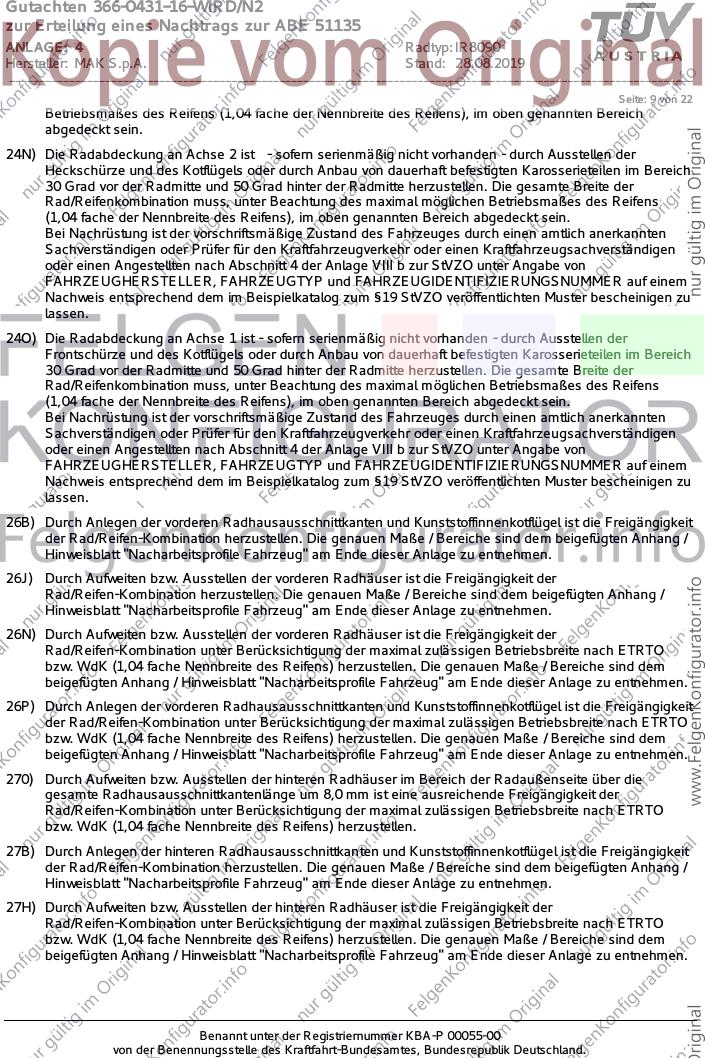 Gutachten 366-0431-16-WIRD/N2
zur Erteilung eines Nachtrags zur ABE 51135
ANLAGE: 4
Hersteller: MAK S.p.A.
Radtyp: IR8090
Stand: 28.08.2019
TÜV
AUSTRIA
Kopie vom Original
Seite: 9 von 22
Betriebsmaßes des Reifens (1,04 fache der Nennbreite des Reifens), im oben genannten Bereich
abgedeckt sein.
24N) Die Radabdeckung an Achse 2 ist - sofern serienmäßig nicht vorhanden - durch Ausstellen der
Heckschürze und des Kotflügels oder durch Anbau von dauerhaft befestigten Karosserieteilen im Bereich
30 Grad vor der Radmitte und 50 Grad hinter der Radmitte herzustellen. Die gesamte Breite der
Rad/Reifenkombination muss, unter Beachtung des maximal möglichen Betriebsmaßes des Reifens
(1,04 fache der Nennbreite des Reifens), im oben genannten Bereich abgedeckt sein.
Bei Nachrüstung ist der vorschriftsmäßige Zustand des Fahrzeuges durch einen amtlich anerkannten
Sachverständigen oder Prüfer für den Kraftfahrzeugverkehr oder einen Kraftfahrzeugsachverständigen
oder einen Angestellten nach Abschnitt 4 der Anlage VIII b zur StVZO unter Angabe von
FAHRZEUGHERSTELLER, FAHRZEUGTYP und FAHRZEUGIDENTIFIZIERUNGSNUMMER auf einem
Nachweis entsprechend dem im Beispielkatalog zum §19 StVZO veröffentlichten Muster bescheinigen zu
lassen.
24O) Die Radabdeckung an Achse 1 ist - sofern serienmäßig nicht vorhanden - durch Ausstellen der
Frontschürze und des Kotflügels oder durch Anbau von dauerhaft befestigten Karosserieteilen im Bereich
30 Grad vor der Radmitte und 50 Grad hinter der Radmitte herzustellen. Die gesamte Breite der
Rad/Reifenkombination muss, unter Beachtung des maximal möglichen Betriebsmaßes des Reifens
(1,04 fache der Nennbreite des Reifens), im oben genannten Bereich abgedeckt sein.
Bei Nachrüstung ist der vorschriftsmäßige Zustand des Fahrzeuges durch einen amtlich anerkannten
Sachverständigen oder Prüfer für den Kraftfahrzeugverkehr oder einen Kraftfahrzeugsachverständigen
oder einen Angestellten nach Abschnitt 4 der Anlage VIII b zur StVZO unter Angabe von
FAHRZEUGHERSTELLER, FAHRZEUGTYP und FAHRZEUGIDENTIFIZIERUNGSNUMMER auf einem
Nachweis entsprechend dem im Beispielkatalog zum §19 StVZO veröffentlichten Muster bescheinigen zu
lassen.
FELGEN
KONFIGURATOR
FelgenKonfigurator.info
26B) Durch Anlegen der vorderen Radhausausschnittkanten und Kunststoffinnenkotflügel ist die Freigängigkeit
der Rad/Reifen-Kombination herzustellen. Die genauen Maße / Bereiche sind dem beigefügten Anhang /
Hinweisblatt "Nacharbeitsprofile Fahrzeug" am Ende dieser Anlage zu entnehmen.
26J) Durch Aufweiten bzw. Ausstellen der vorderen Radhäuser ist die Freigängigkeit der
Rad/Reifen-Kombination herzustellen. Die genauen Maße / Bereiche sind dem beigefügten Anhang /
Hinweisblatt "Nacharbeitsprofile Fahrzeug" am Ende dieser Anlage zu entnehmen.
26N) Durch Aufweiten bzw. Ausstellen der vorderen Radhäuser ist die Freigängigkeit der
Rad/Reifen-Kombination unter Berücksichtigung der maximal zulässigen Betriebsbreite nach ETRTO
bzw. WdK (1,04 fache Nennbreite des Reifens) herzustellen. Die genauen Maße / Bereiche sind dem
beigefügten Anhang / Hinweisblatt "Nacharbeitsprofile Fahrzeug" am Ende dieser Anlage zu entnehmen.
26P) Durch Anlegen der vorderen Radhausausschnittkanten und Kunststoffinnenkotflügel ist die Freigängigkeit
der Rad/Reifen-Kombination unter Berücksichtigung der maximal zulässigen Betriebsbreite nach ETRTO
bzw. WdK (1,04 fache Nennbreite des Reifens) herzustellen. Die genauen Maße / Bereiche sind dem
beigefügten Anhang / Hinweisblatt "Nacharbeitsprofile Fahrzeug" am Ende dieser Anlage zu entnehmen.
270) Durch Aufweiten bzw. Ausstellen der hinteren Radhäuser im Bereich der Radaußenseite über die
gesamte Radhausausschnittkantenlänge um 8,0 mm ist eine ausreichende Freigängigkeit der
Rad/Reifen-Kombination unter Berücksichtigung der maximal zulässigen Betriebsbreite nach ETRTO
bzw. WdK (1,04 fache Nennbreite des Reifens) herzustellen.
27B) Durch Anlegen der hinteren Radhausausschnittkanten und Kunststoffinnenkotflügel ist die Freigängigkeit
der Rad/Reifen-Kombination herzustellen. Die genauen Maße / Bereiche sind dem beigefügten Anhang /
Hinweisblatt "Nacharbeitsprofile Fahrzeug" am Ende dieser Anlage zu entnehmen.
27H) Durch Aufweiten bzw. Ausstellen der hinteren Radhäuser ist die Freigängigkeit der
Rad/Reifen-Kombination unter Berücksichtigung der maximal zulässigen Betriebsbreite nach ETRTO
bzw. WdK (1,04 fache Nennbreite des Reifens) herzustellen. Die genauen Maße / Bereiche sind dem
beigefügten Anhang / Hinweisblatt "Nacharbeitsprofile Fahrzeug" am Ende dieser Anlage zu entnehmen.
nur gültig im Original
www.FelgenKonfigurator.info
Benannt unter der Registriernummer KBA-P 00055-00
von der Benennungsstelle des Kraftfahrt-Bundesamtes, Bundesrepublik Deutschland.